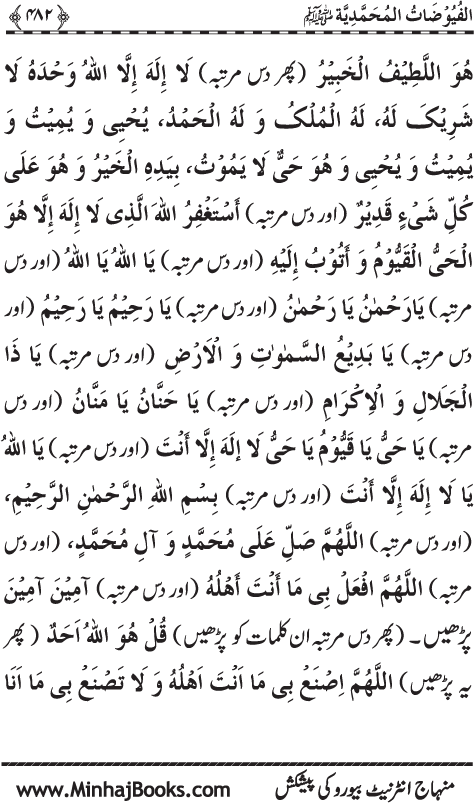 الفُیُوْضَاتُ المُحَمَّدِیَّة ﷺ ﴿۴۸۲﴾
هُوَ اللَّطِيْفُ الْخَبِيْرُ (پھر دس مرتبہ) لَا إِلَهَ إِلَّا اللهُ وَحْدَهُ لَا
شَرِيْكَ لَهُ، لَهُ الْمُلْكُ وَ لَهُ الْحَمْدُ، يُحْيِي وَ يُمِيْتُ وَ
يُمِيْتُ وَ يُحْيِي وَ هُوَ حَيٌّ لَا يَمُوْتُ، بِيَدِهِ الْخَيْرُ وَ هُوَ عَلَى
كُلِّ شَيْءٍ قَدِيْرٌ (اور دس مرتبہ) أَسْتَغْفِرُ اللهَ الَّذِي لَا إِلَهَ إِلَّا هُوَ
الْحَيُّ الْقَيُّوْمُ وَ أَتُوْبُ إِلَيْهِ (اور دس مرتبہ) يَا اللهُ يَا اللهُ (اور دس
مرتبہ) يَارَحْمٰنُ يَا رَحْمٰنُ (اور دس مرتبہ) يَا رَحِيْمُ يَا رَحِيْمُ (اور
دس مرتبہ) يَا بَدِيْعُ السَّمٰوٰتِ وَ الْاَرْضِ (اور دس مرتبہ) يَا ذَا
الْجَلَالِ وَ الْإِكْرَامِ (اور دس مرتبہ) يَا حَنَّانُ يَا مَنَّانُ (اور دس
مرتبہ) يَا حَيُّ يَا قَيُّوْمُ يَا حَيُّ لَا إِلَهَ إِلَّا أَنْتَ (اور دس مرتبہ) يَا اللهُ
يَا لَا إِلَهَ إِلَّا أَنْتَ (اور دس مرتبہ) بِسْمِ اللهِ الرَّحْمٰنِ الرَّحِيْمِ،
(اور دس مرتبہ) اللَّهُمَّ صَلِّ عَلَى مُحَمَّدٍ وَ آلِ مُحَمَّدٍ، (اور دس
مرتبہ) اللَّهُمَّ افْعَلْ بِي مَا أَنْتَ أَهْلُهُ (اور دس مرتبہ) آمِيْنَ آمِيْنَ
پڑھیں۔ (پھر دس مرتبہ ان کلمات کو پڑھیں) قُلْ هُوَ اللهُ اَحَدٌ (پھر
یہ پڑھیں) اللَّهُمَّ اِصْنَعْ بِي مَا اَنْتَ اَهْلُهُ وَ لَا تَصْنَعْ بِي مَا اَنَا
منہاج انٹرنیٹ بیورو کی پیشکش www.MinhajBooks.com